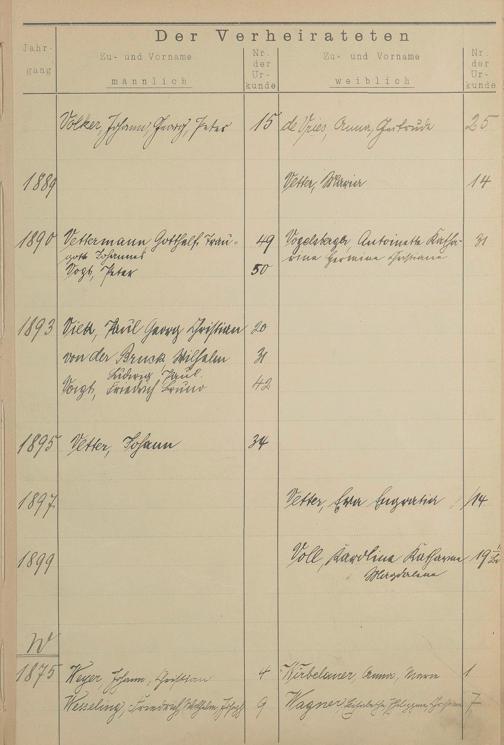 Der Verheirateten
Jahr-
gang
Zu- und Vorname
männlich
Nr.
der
Ur-
kunde
Zu- und Vorname
weiblich
Nr.
der
Ur-
kunde
Volker, Johann, Georg, Peter 15 de Vries, Anna, Gertrude 25
1889 Vetter, Maria 14
1890 Vettermann Gotthelf, Trau- 49 Vogelsberger Antoinette Katha- 31
gott Johannes rine Hermine
Vogt, Peter 50
1893 Paul Georg Christian 20
von der Bruck Wilhelm 31
Ludwig Paul
Voigt, Friedrich Bruno 42
1895 Vetter, Johann 34
1897 Vetter, Eva 14
1899 Voll, Karoline Katharine 19
Magdalena
W
1875 Weyer, Johann, Christian 4 Anna, Maria 1
Wesseling, Friedrich, Wilhelm, Joseph 9 Wagner 7